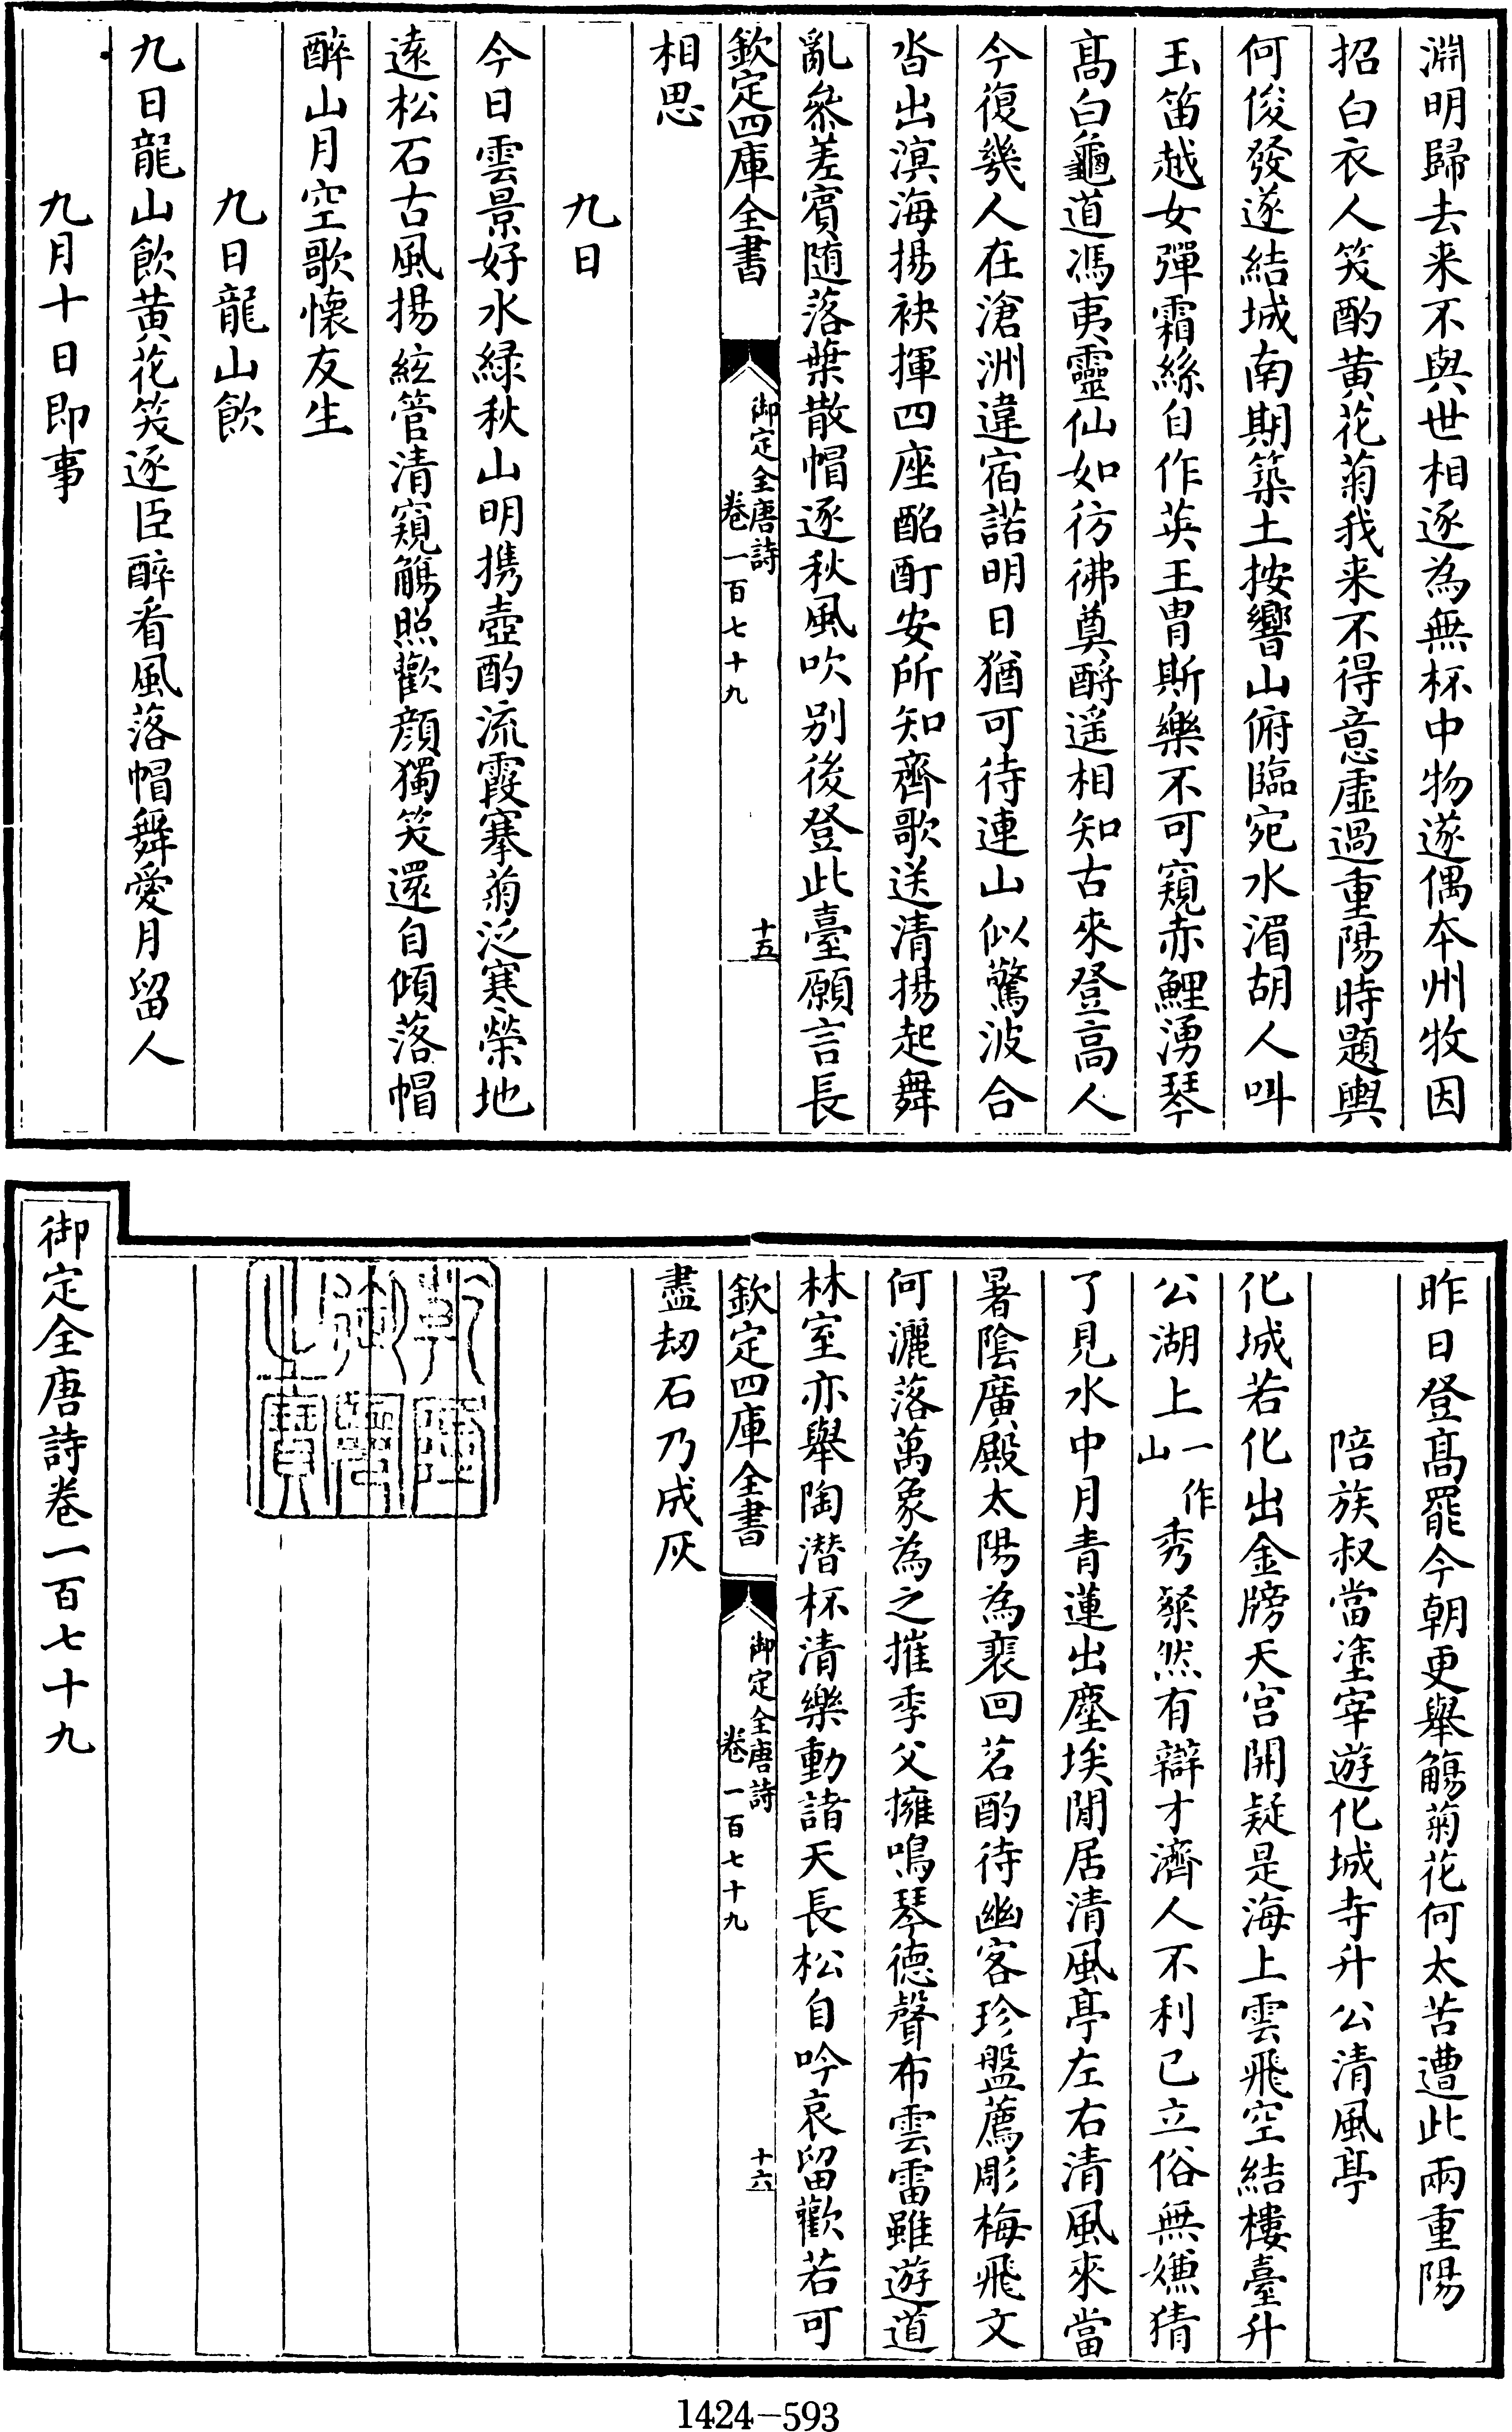 淵明歸去来不與世相逐為無杯中物遂偶本州牧因
招白衣人笑酌黄花菊我来不得意虚過重陽時題輿
何俊發遂結城南期築土按響山俯臨宛水湄胡人叫
玉笛越女彈霜絲自作英王胄斯樂不可窺赤鯉湧琴
髙白龜道馮夷靈仙如彷彿奠酹遥相知古來登高人
今復幾人在滄洲違宿諾明日猶可待連山似驚波合
沓出溟海揚袂揮四座酩酊安所知齊歌送清揚起舞
亂參差賓随落葉散帽逐秋風吹别後登此臺願言長
欽定四庫全書
御定全唐詩
卷一百七十九
十五
相思
九日
今日雲景好水緑秋山明携壺酌流霞搴菊泛寒榮地
遠松石古風揚絃管清窺觴照歡顔獨笑還自傾落帽
醉山月空歌懐友生
九日龍山飲
九日龍山飲黄花笑逐臣醉看風落帽舞愛月留人
九月十日即事
昨日登髙罷今朝更舉觴菊花何太苦遭此兩重陽
陪族叔當塗宰遊化城寺升公清風亭
化城若化出金牓天宫開疑是海上雲飛空結樓臺升
公湖上一作山秀粲然有辯才濟人不利己立俗無嫌猜
了見水中月青蓮出塵埃閒居清風亭左右清風來當
暑陰廣殿太陽為裵回茗酌待幽客珍盤薦彫梅飛文
何灑落萬象為之摧季父擁鳴琴德聲布雲雷雖遊道
林室亦舉陶潛杯清樂動諸天長松自吟哀留歡若可
欽定四庫全書
御定全唐詩
卷一百七十九
十六
盡刼石乃成灰
乾隆御覽之寶
御定全唐詩卷一百七十九
1424-593